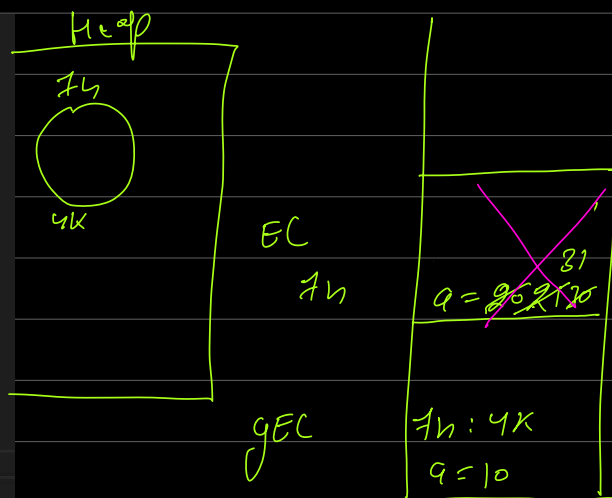 Heap
fn
4K
EC
fn
31
a = 20 21 30
gEC
fn : 4K
a = 10